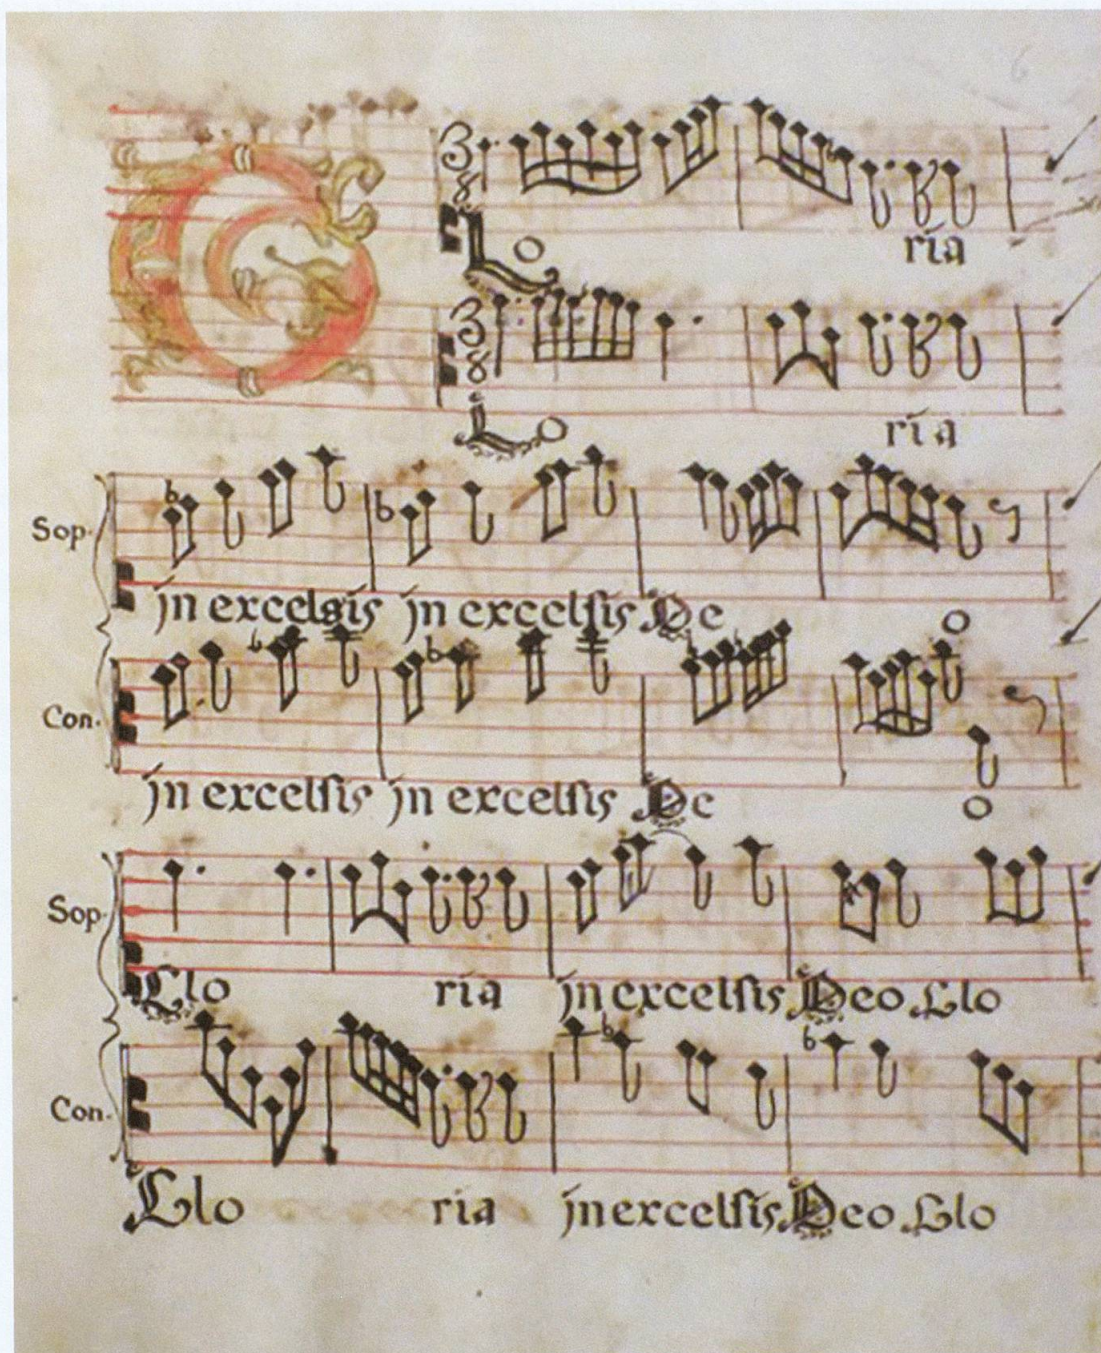 6
G
3
8
Lo ria
3
8
Lo ria
Sop.
jn excelsis jn excelſis De o
Con.
jn excelſis jn excelſis De o
Sop.
Glo ria jn excelſis Deo Glo
Con.
Glo ria jn excelſis Deo Glo